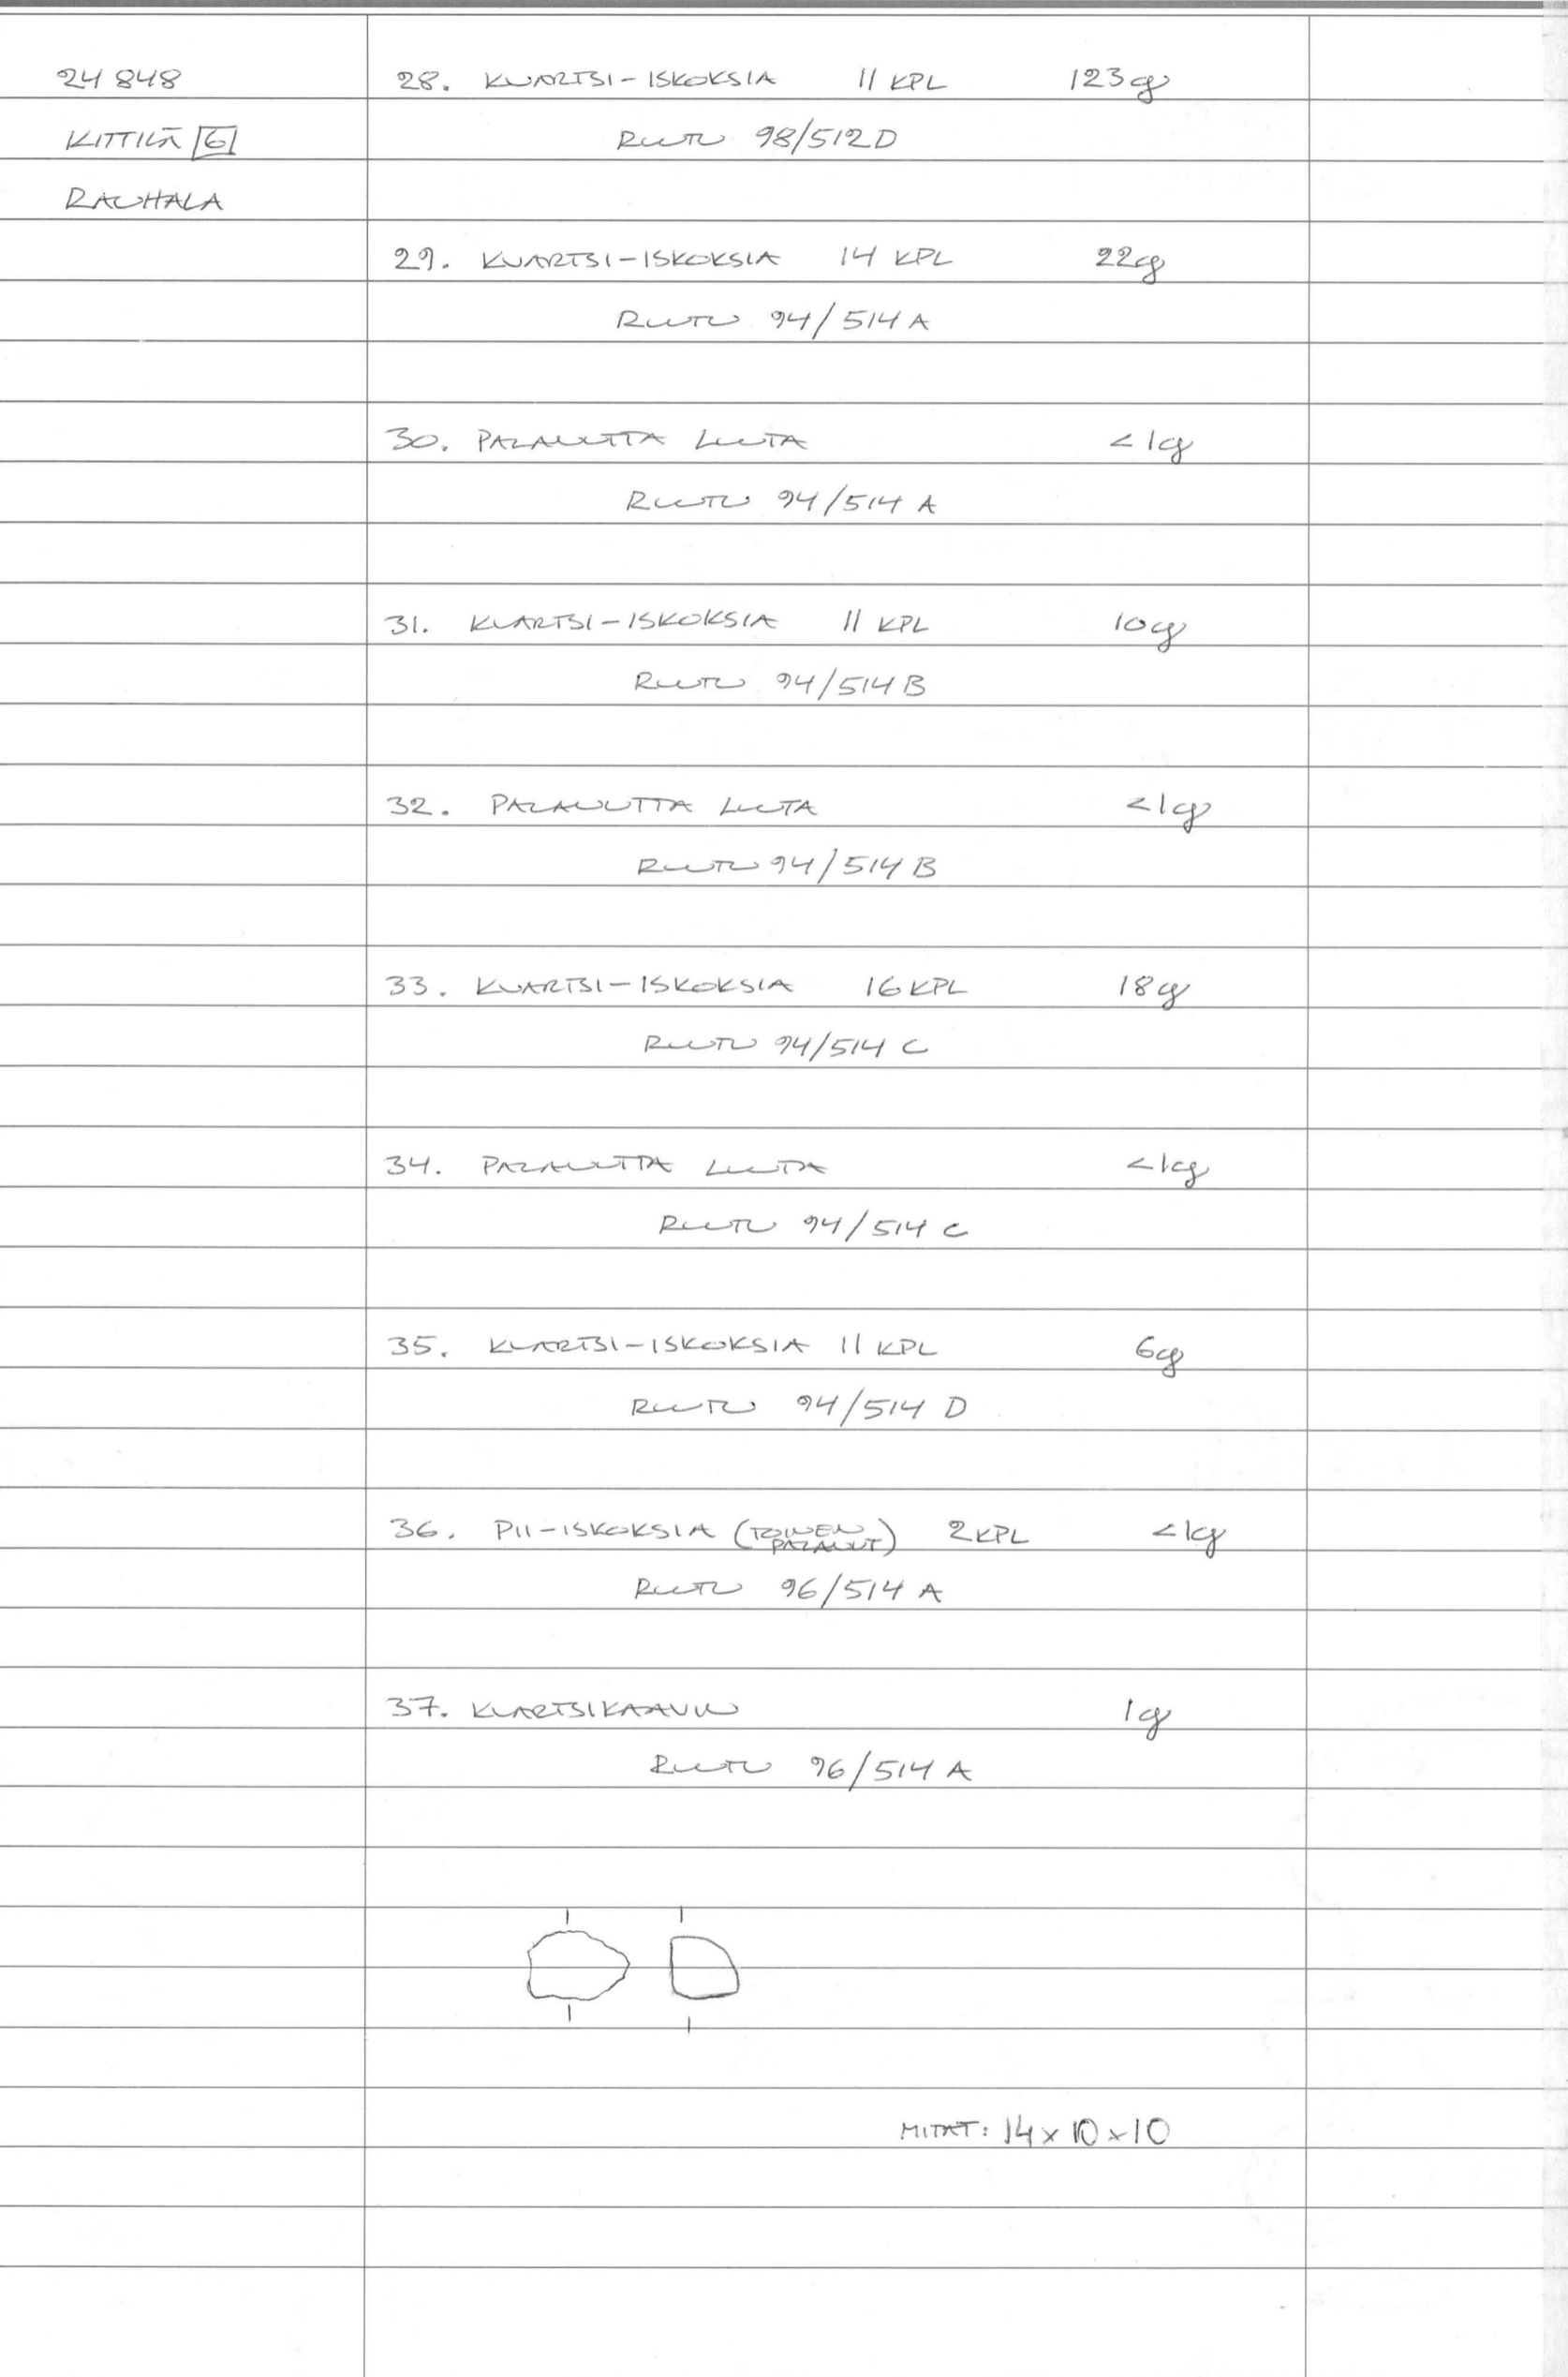 24 848 28. KVARTSI-ISKOKSIA 11 KPL 123g
KITTILÄ 6 RUUTU 98/512 D
RAUHALA
29. KVARTSI-ISKOKSIA 14 KPL 22g
RUUTU 94/514 A
30. PALANUTTA LUUTA <1g
RUUTU 94/514 A
31. KVARTSI-ISKOKSIA 11 KPL 10g
RUUTU 94/514 B
32. PALANUTTA LUUTA <1g
RUUTU 94/514 B
33. KVARTSI-ISKOKSIA 16 KPL 18g
RUUTU 94/514 C
34. PALANUTTA LUUTA <1g
RUUTU 94/514 C
35. KVARTSI-ISKOKSIA 11 KPL 6g
RUUTU 94/514 D
36. PII-ISKOKSIA (TOINEN PALANUT) 2 KPL <1g
RUUTU 96/514 A
37. KVARTSIKAAVIN 1g
RUUTU 96/514 A
MITAT: 14 x 10 x 10